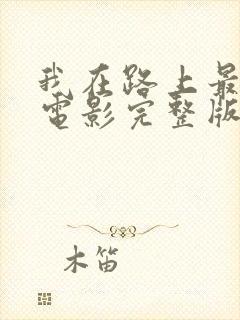 我在路上最
电影完整版
木笛